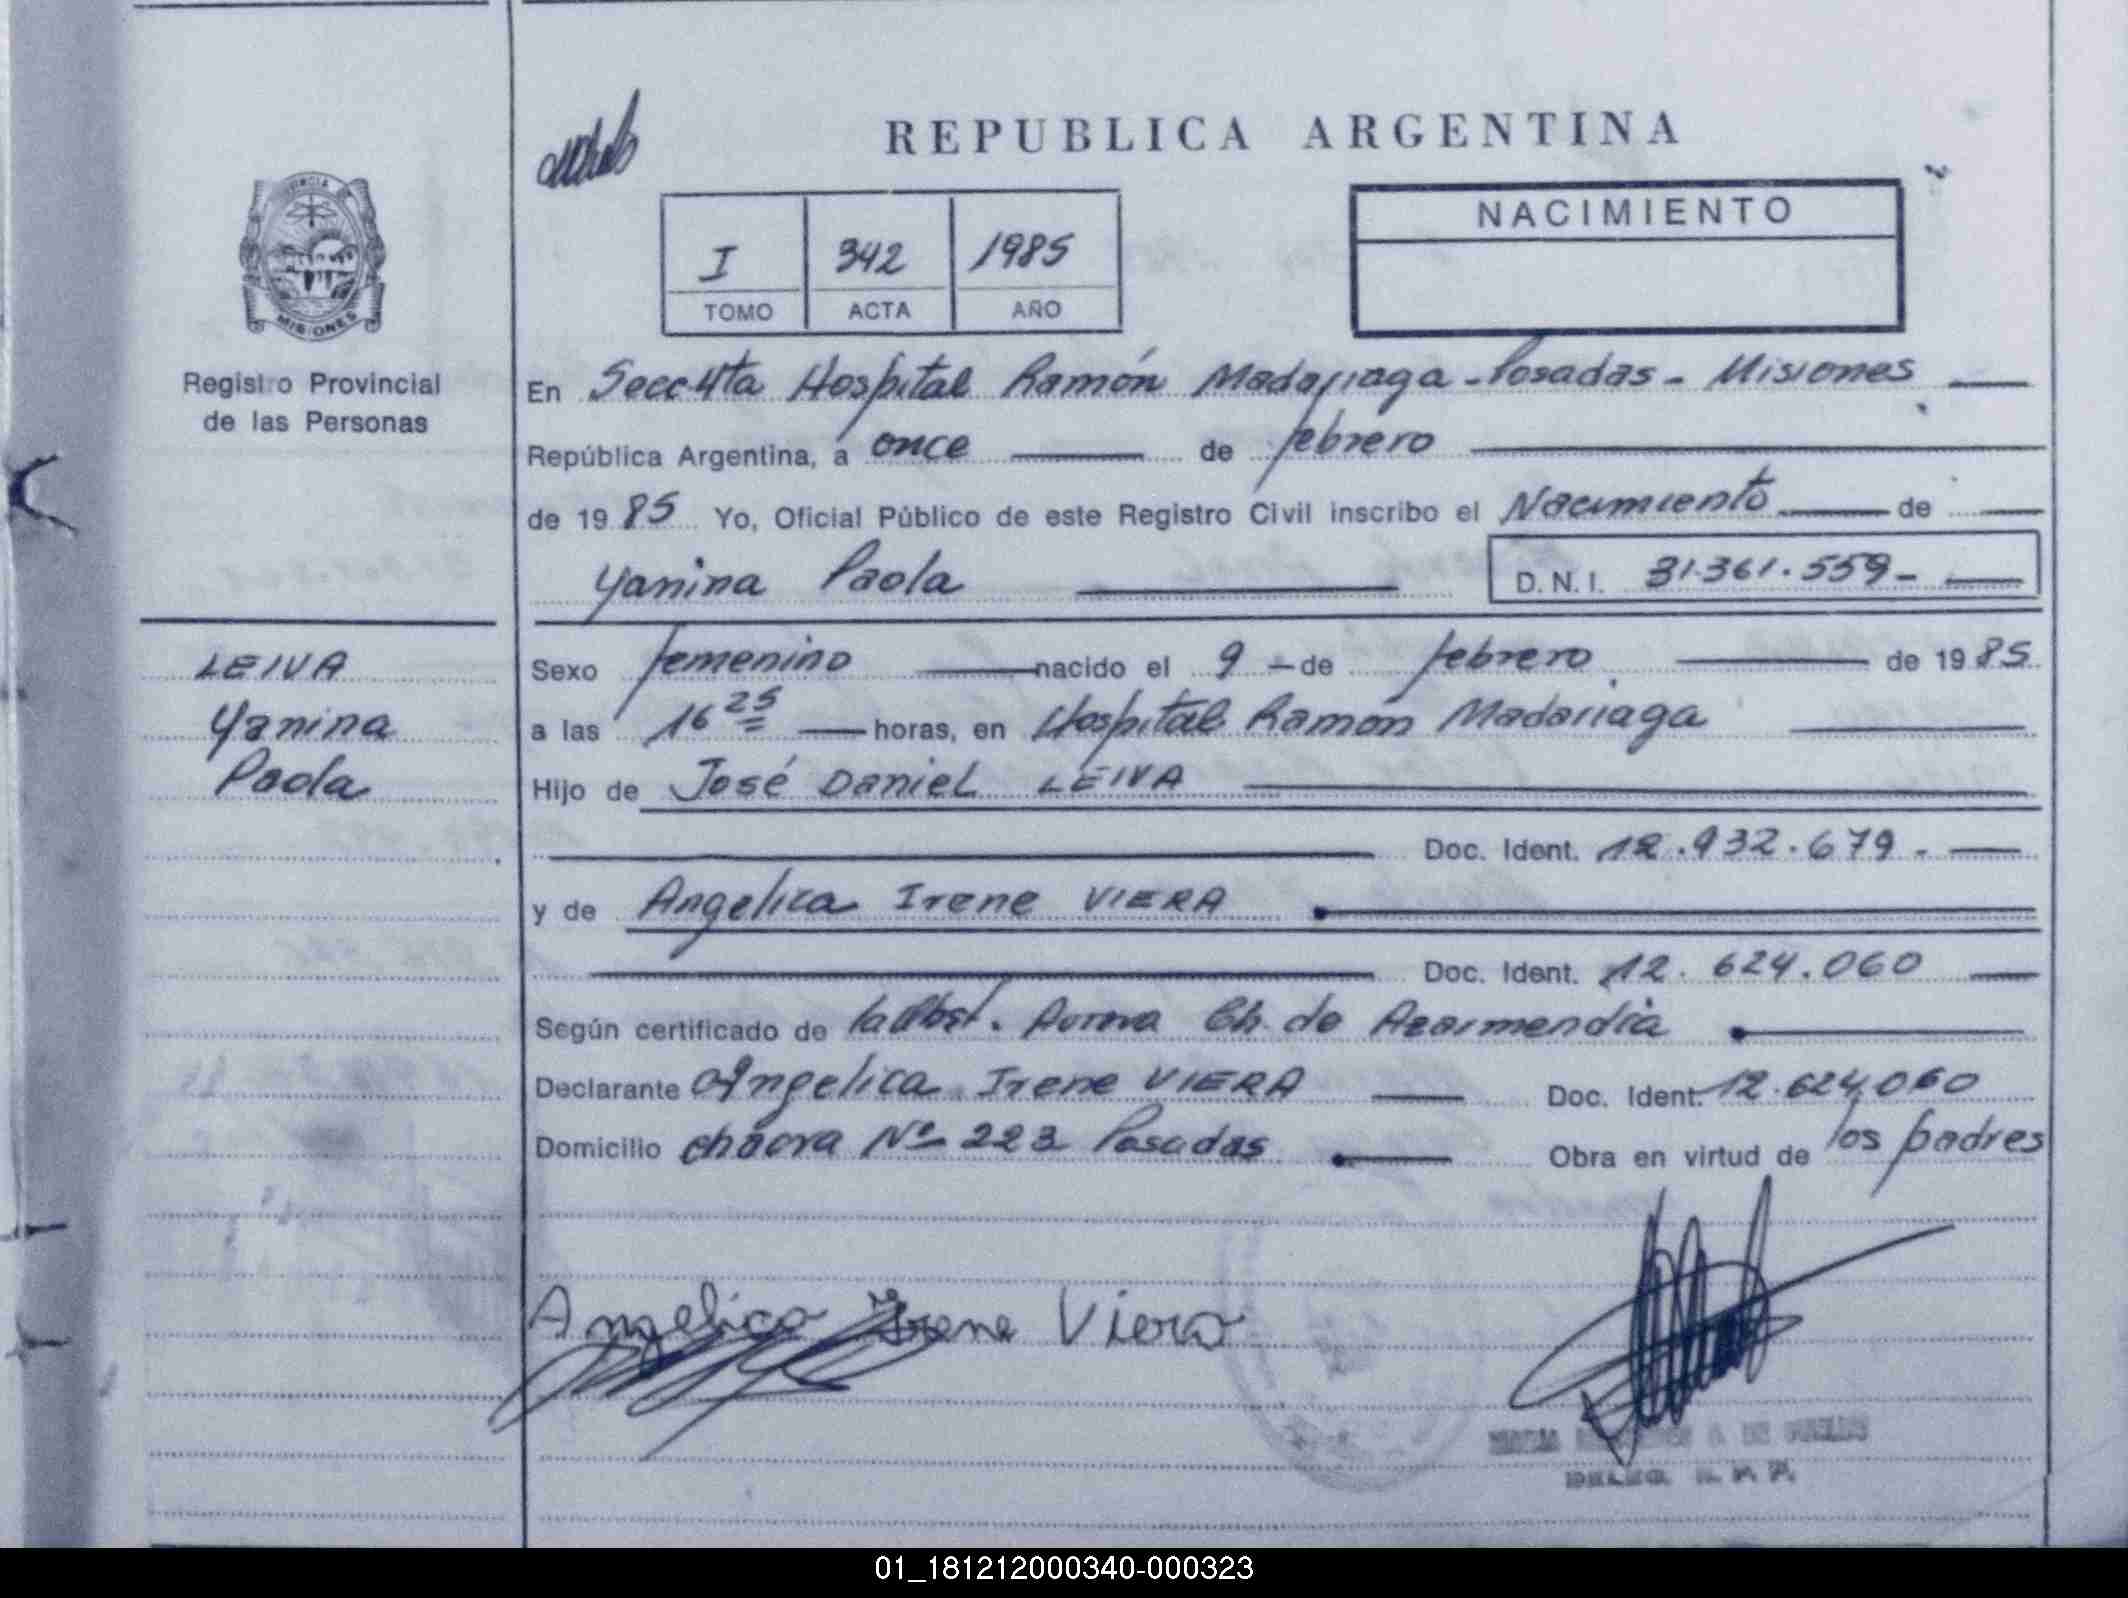 REPUBLICA ARGENTINA
NACIMIENTO
I 342 1985
TOMO ACTA AÑO
MISIONES
Registro Provincial
de las Personas
En Secc 4ta Hospital Ramón Madariaga - Posadas - Misiones
República Argentina, a once de febrero
de 1985 Yo, Oficial Público de este Registro Civil inscribo el Nacimiento de
Yanina Paola D.N.I. 31.361.559-
LEIVA
Yanina
Paola
Sexo femenino nacido el 9 de febrero de 1985
a las 16 25 horas, en Hospital Ramón Madariaga
Hijo de José Daniel LEIVA
Doc. Ident. 12.932.679-
y de Angelica Irene VIERA
Doc. Ident. 12.624.060
Según certificado de la Obst. Aurora Ch. de Azarmendia
Declarante Angelica Irene VIERA Doc. Ident. 12.624.060
Domicilio chacra Nº 223 Posadas Obra en virtud de los padres
Angelica Irene Viera
DELEG. R. P. P.
01_181212000340-000323